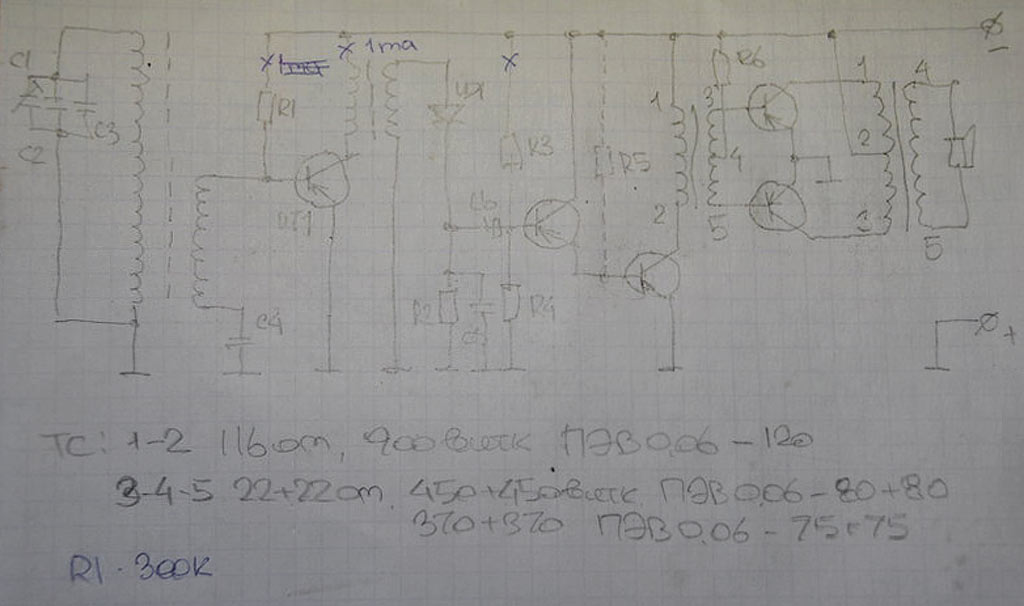 C1
C2
C3
R1
1ma
VT1
C4
R3
R2
R4
R5
R6
1
2
3
4
5
1
2
3
4
5
-
+
TC: 1-2 116 от, 900 витк ПЭВ 0,06 - 120
3-4-5 22+22 от 450+450 витк ПЭВ 0,06 - 80+80
370+370 ПЭВ 0,06 - 75+75
R1 · 300K